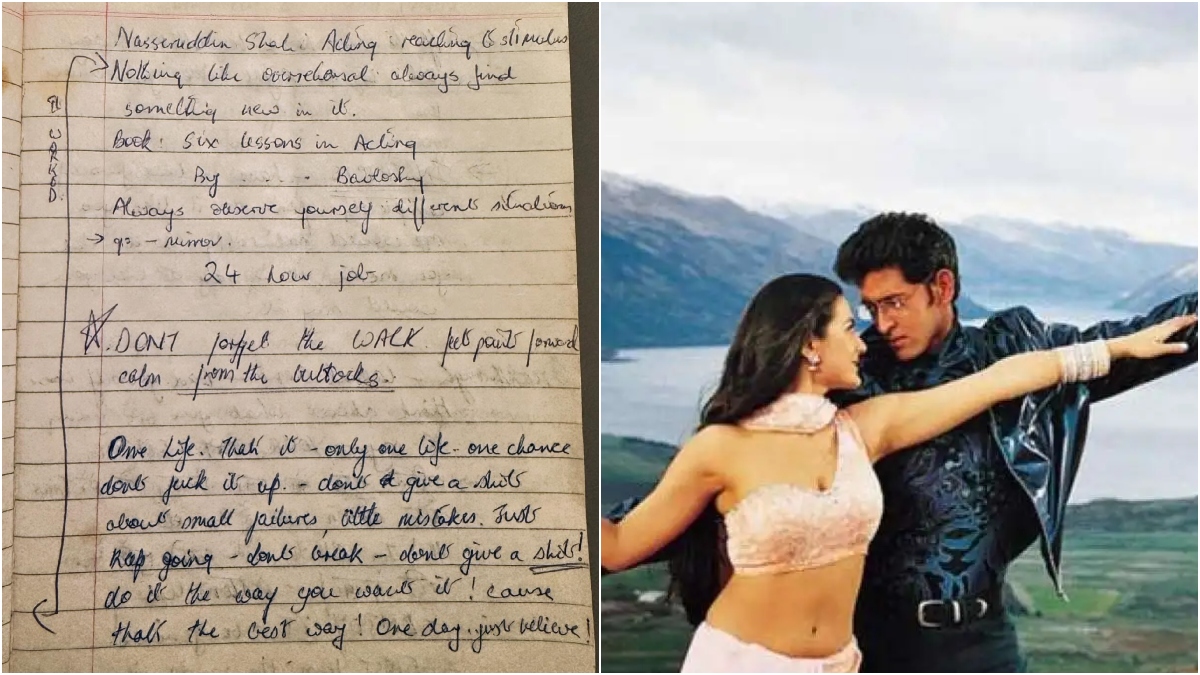 Nasseruddin Shah: Acting: reacting to stimulus
Nothing like overrehersal always find
something new in it.
Book: Six lessons in Acting
By . . . -
Always observe yourself different situations
→ - mirror.
24 hour job
IT WORKED.
DONT forget the WALK. feet point forward
calm from the buttocks.
One Life. That it - only one life. one chance
dont fuck it up. - dont give a shit
about small failures, little mistakes. Just
keep going - dont break - dont give a shit!
do it the way you want it! cause
thats the best way! One day. just believe!